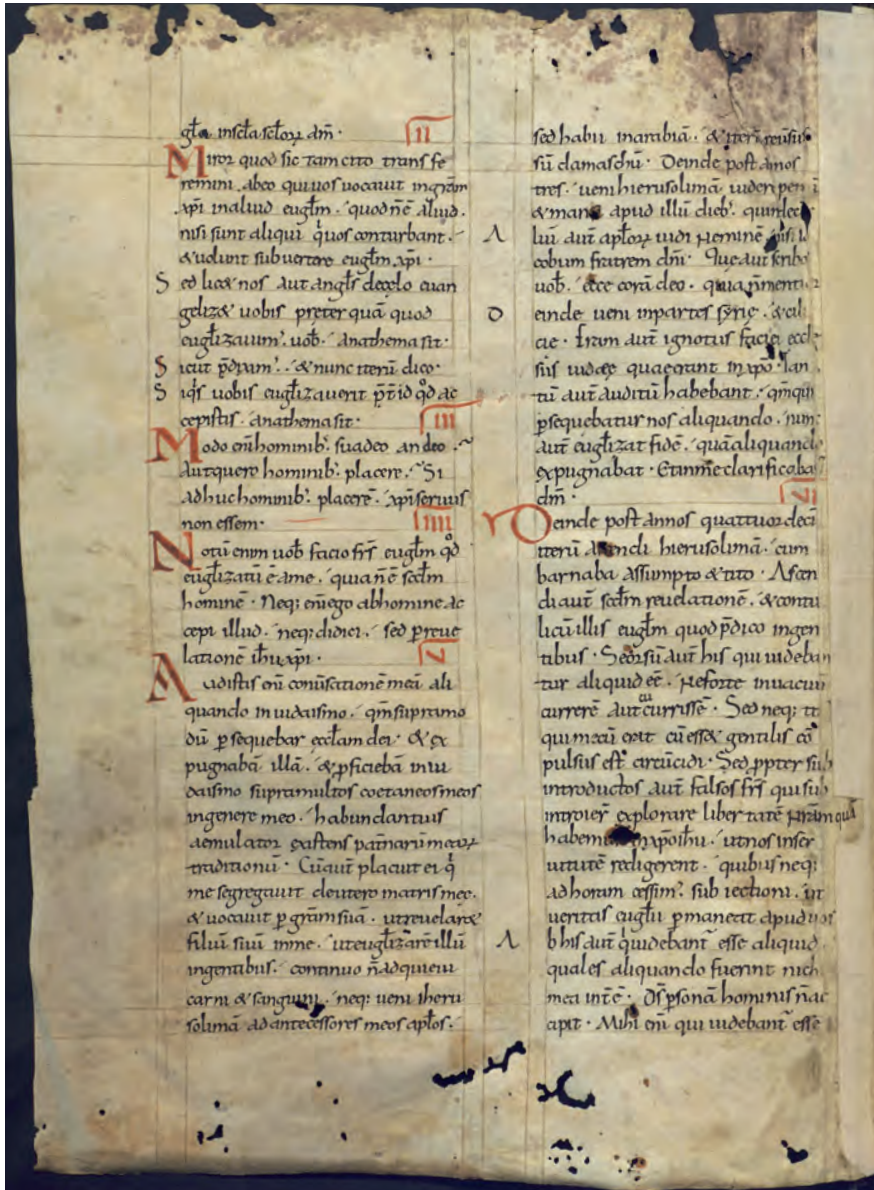 gła insc̄la sc̄lorꝝ am̄·
II
Miror quod sic tam cito transfe
remini· abeo qui uos uocauit ingr̄am
xp̄i inaliud eugl̄m· quod nē aliud·
nisi sunt aliqui q̇uos conturbant·
& uolunt subuertere eugl̄m xp̄i·
Sed lic& nos aut angl̄s decęlo euan
geliz& uobis preter quā quod
eugl̄izauim᾽· uob̄· anathema sit·
Sicut p̄dixim᾽· & nunc iterū dico·
Siq̇s uobis eugl̄izauerit p̄t id qd̄ ac
cepistis· anathema sit·
III
Modo em̄ hominib᾽· suadeo an deo·
Aut quero hominib᾽· placere· Si
adhuc hominib᾽· placerē· xp̄i seruus
non essem·
IIII
Notū enim uob̄ facio fr̄s eugl̄m qd̄
eugl̄izatū ē ame· quia nē scd̄m
hominē· Neq; em̄ ego abhomine ac
cepi illud· neq; didici· sed p̱ reue
lationē ih̄u xp̄i·
V
Audistis em̄ conūsationē meā ali
quando in iudaismo· qm̄ supra mo
dū p̱sequebar eccl̄am dei· & ex
pugnabā illā· & ꝓficiebā in iu
daismo supra multos coetaneos meos
ingenere meo· habundantius
aemulator existens patnarū mearꝝ
traditionū· Cū aut̄ placuit ei q̇
me segregauit deutero matris meę·
& uocauit p̱ gr̄am suā· ut reuelar&
filiū suū inme· ut eugl̄izarē illū
ingentibus· continuo n̄ adquieui
carni & sanguini· neq; ueni iheru
solimā ad antecessores meos apl̄os·
sed habii inarabiā· & iterū reūsus
sū damaschū· Deinde post annos
tres· ueni hierusolimā uidere p&
& mansi apud illū dieb᾽· quindecī
Aliū aut̄ apl̄orꝝ uidi neminē nisi ia
cobum fratrem dn̄i· Que aut̄ scribo
uob̄· ecce corā deo· quia n̄ mentior
Deinde ueni inpartes syrię· & cili
cie· Eram aut̄ ignotus faciei eccle
siis iudaeę quae erant inxp̄o· Tan
tū aut̄ auditū habebant· qm̄ qui
p̱sequebatur nos aliquando· nunc
aut̄ eugl̄izat fidē· quā aliquando
expugnabat· Et inme clarificabant
dm̄·
VI
Deinde post annos quattuordecī
iterū ascendi hierusolimā· cum
barnaba assumpto & tito· Ascen
di aut̄ scd̄m reuelationē· & contu
li cū illis eugl̄m quod p̄dico ingen
tibus· Seorsū aut̄ his qui uideban
tur aliquid eē· Ne forte inuacuū
currerē aut cucurrissē· Sed neq; ti
qui mecū erat cū ess& gentilis cō
pulsus est circūcidi· Sed ꝓpter sub
introductos aut̄ falsos fr̄s qui sub
introier̄ explorare libertatē nr̄am quā
habemus inxp̄o ih̄u· ut nos inser
uitutē redigerent· quibus neq;
ad horam cessim᾽· subiectioni· ut
ueritas eugl̄ii p̱maneat apud uos
Ab his aut̄ q̇ uidebant̄ esse aliquid·
quales aliquando fuerint nich
mea int̄ē· Ds̄ p̱sonā hominis n̄ ac
cipit· Mihi em̄ qui uidebant̄ esse